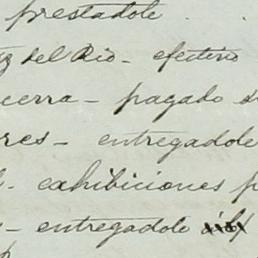 prestadole . .
del Rio - efectivo
cerra - pagado
res - entregadole
exhibiciones p
- entregadole